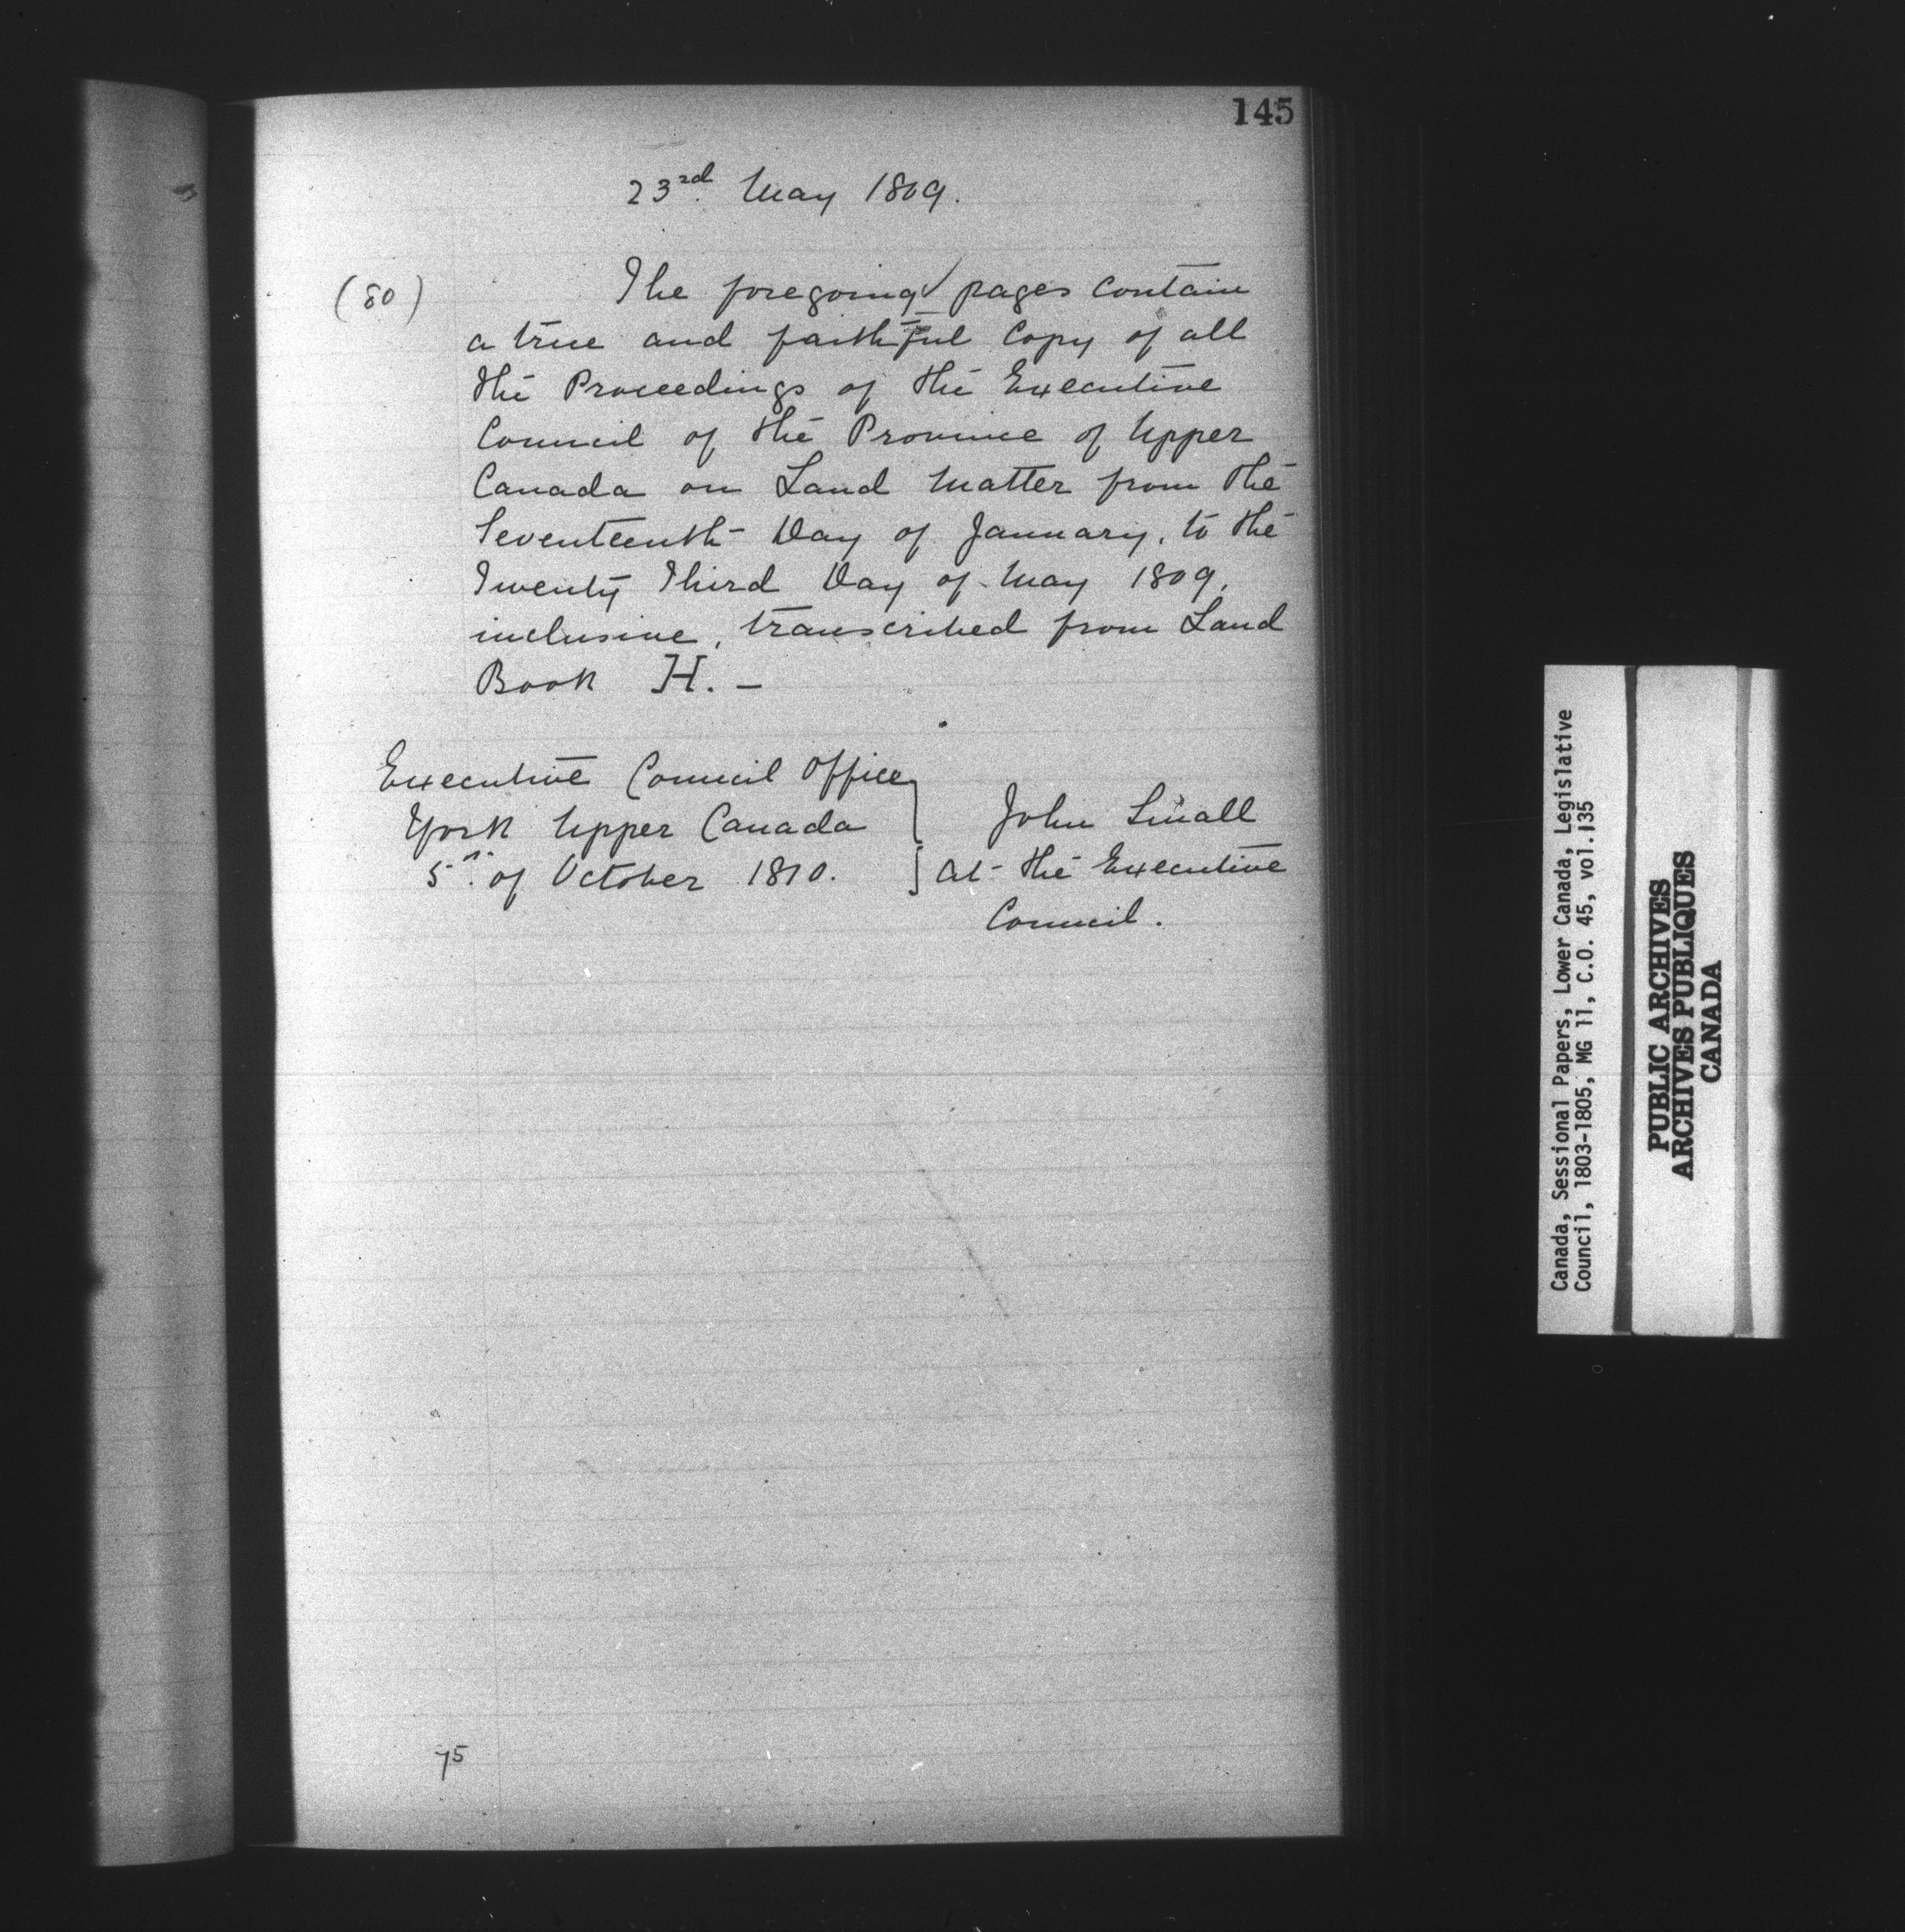 145
23rd May 1809.
(80)
The foregoing pages contain
a true and faithful Copy of all
the Proceedings of the Executive
Council of the Province of Upper
Canada on Land Matter from the
Seventeenth Day of January, to the
Twenty Third Day of May 1809,
inclusive, transcribed from Land
Book H. –
Executive Council Office
York Upper Canada
5th of October 1810.
John Small
Council.
the Executive
75
Canada, Sessional Papers, Lower Canada, Legislative
Council, 1803-1805, MG 11, C.O. 45, vol.135
PUBLIC ARCHIVES
ARCHIVES PUBLIQUES
CANADA